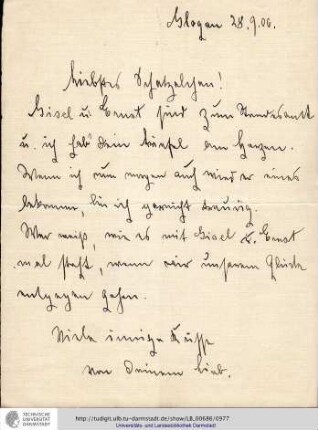 Glogau 28.9.06.
Liebstes Schatzelchen!
Gisel u. Ernst sind zum Standesamt
u. ich hab' Dein Briefel am Herzen.
Wenn ich nun morgen auch wieder eines
bekomme, bin ich garnicht traurig.
Wer weiß, wie es mit Gisel & Ernst
mal steht, wenn wir unserem Glücke
entgegen gehen.
Viele innige Küsse
von Deinem Lieb.
TECHNISCHE
UNIVERSITÄT
DARMSTADT
http://tudigit.ulb.tu-darmstadt.de/show/LB_00680/0977
Universitäts- und Landesbibliothek Darmstadt